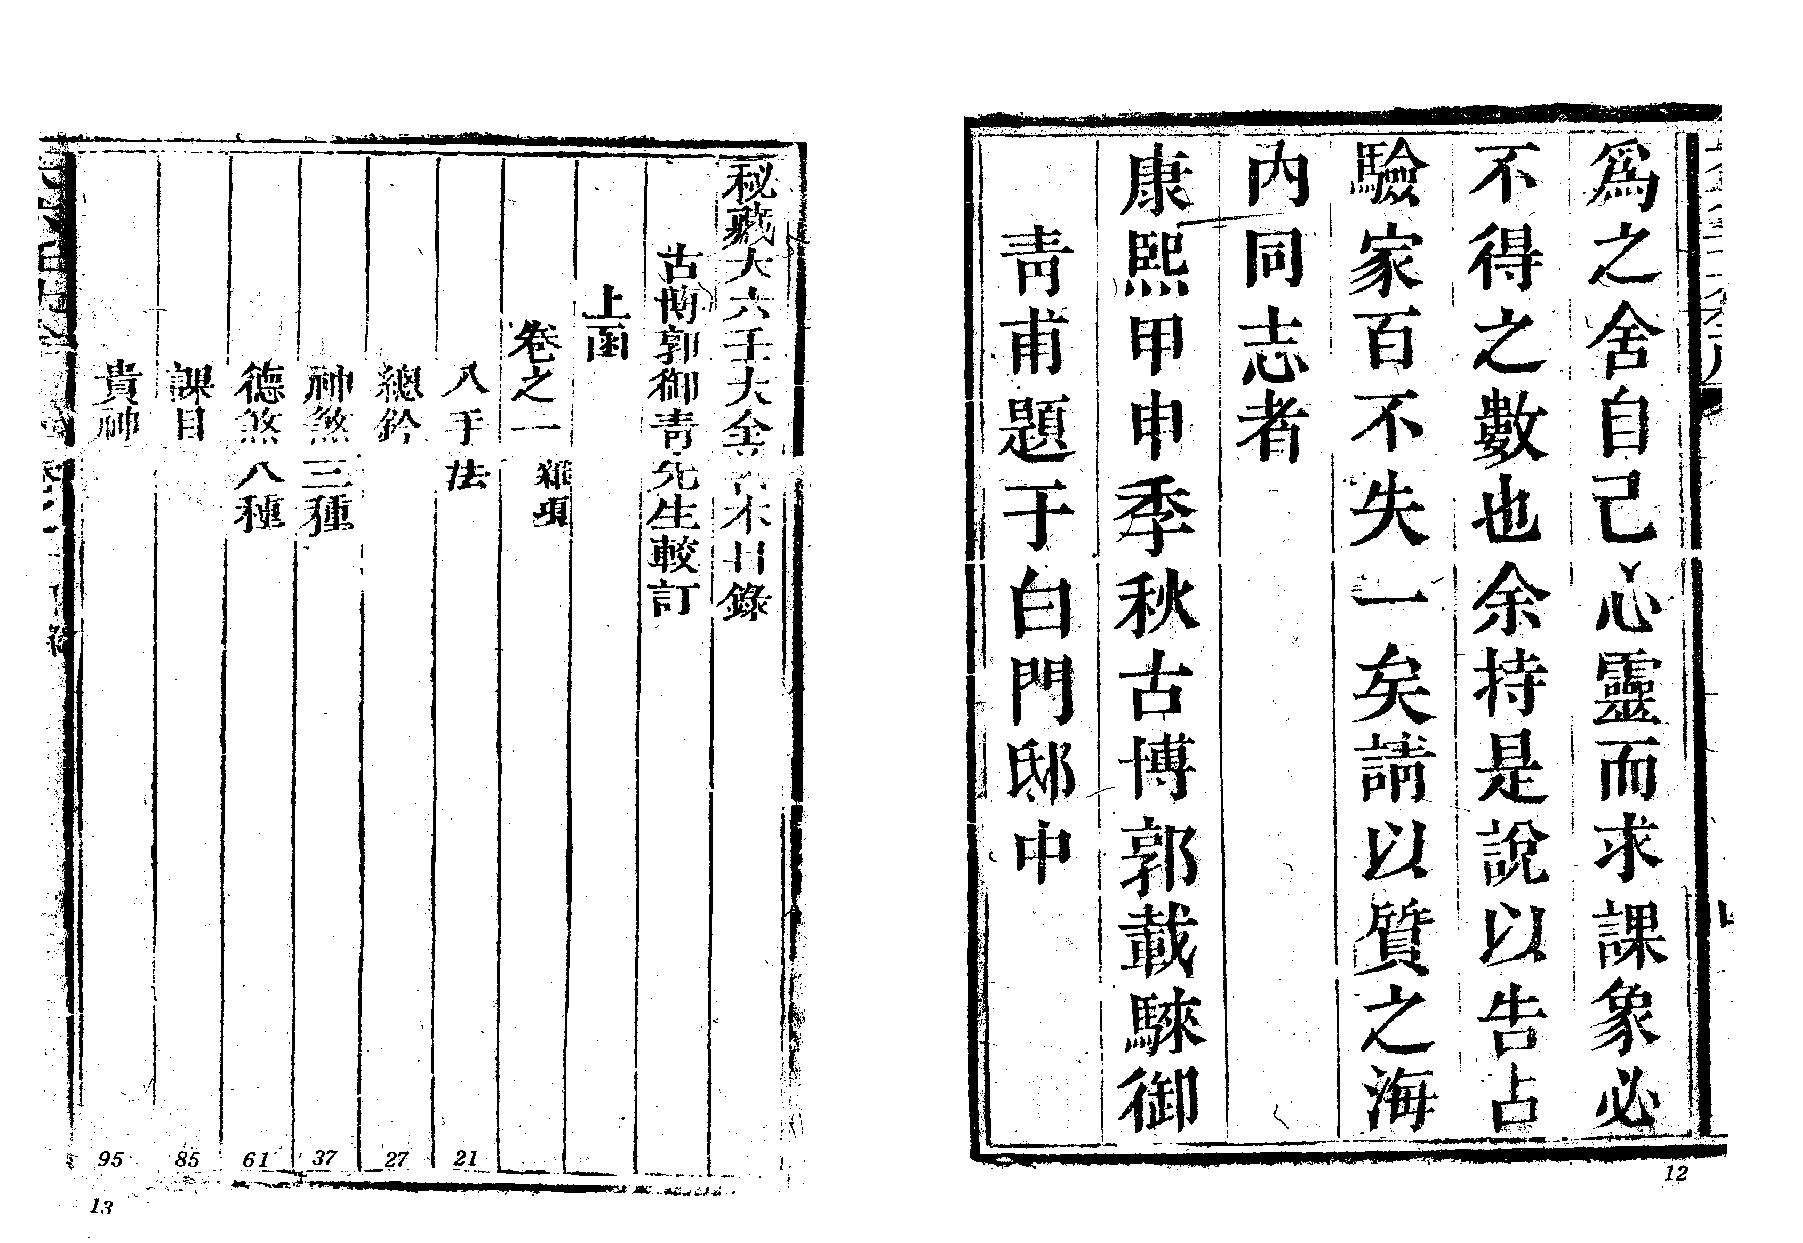 爲之舍自己心靈而求課象必
不得之數也余持是說以告占
驗家百不失一矣請以質之海
內同志者
康熙甲申季秋古博郭載騋御
靑甫題于白門邸中
12
秘藏大六壬大全善本目錄
古博郭御靑先生較訂
上函
卷之一 雜項
八手法 21
總鈐 27
神煞三種 37
德煞八種 61
課目 85
貴神 95
13